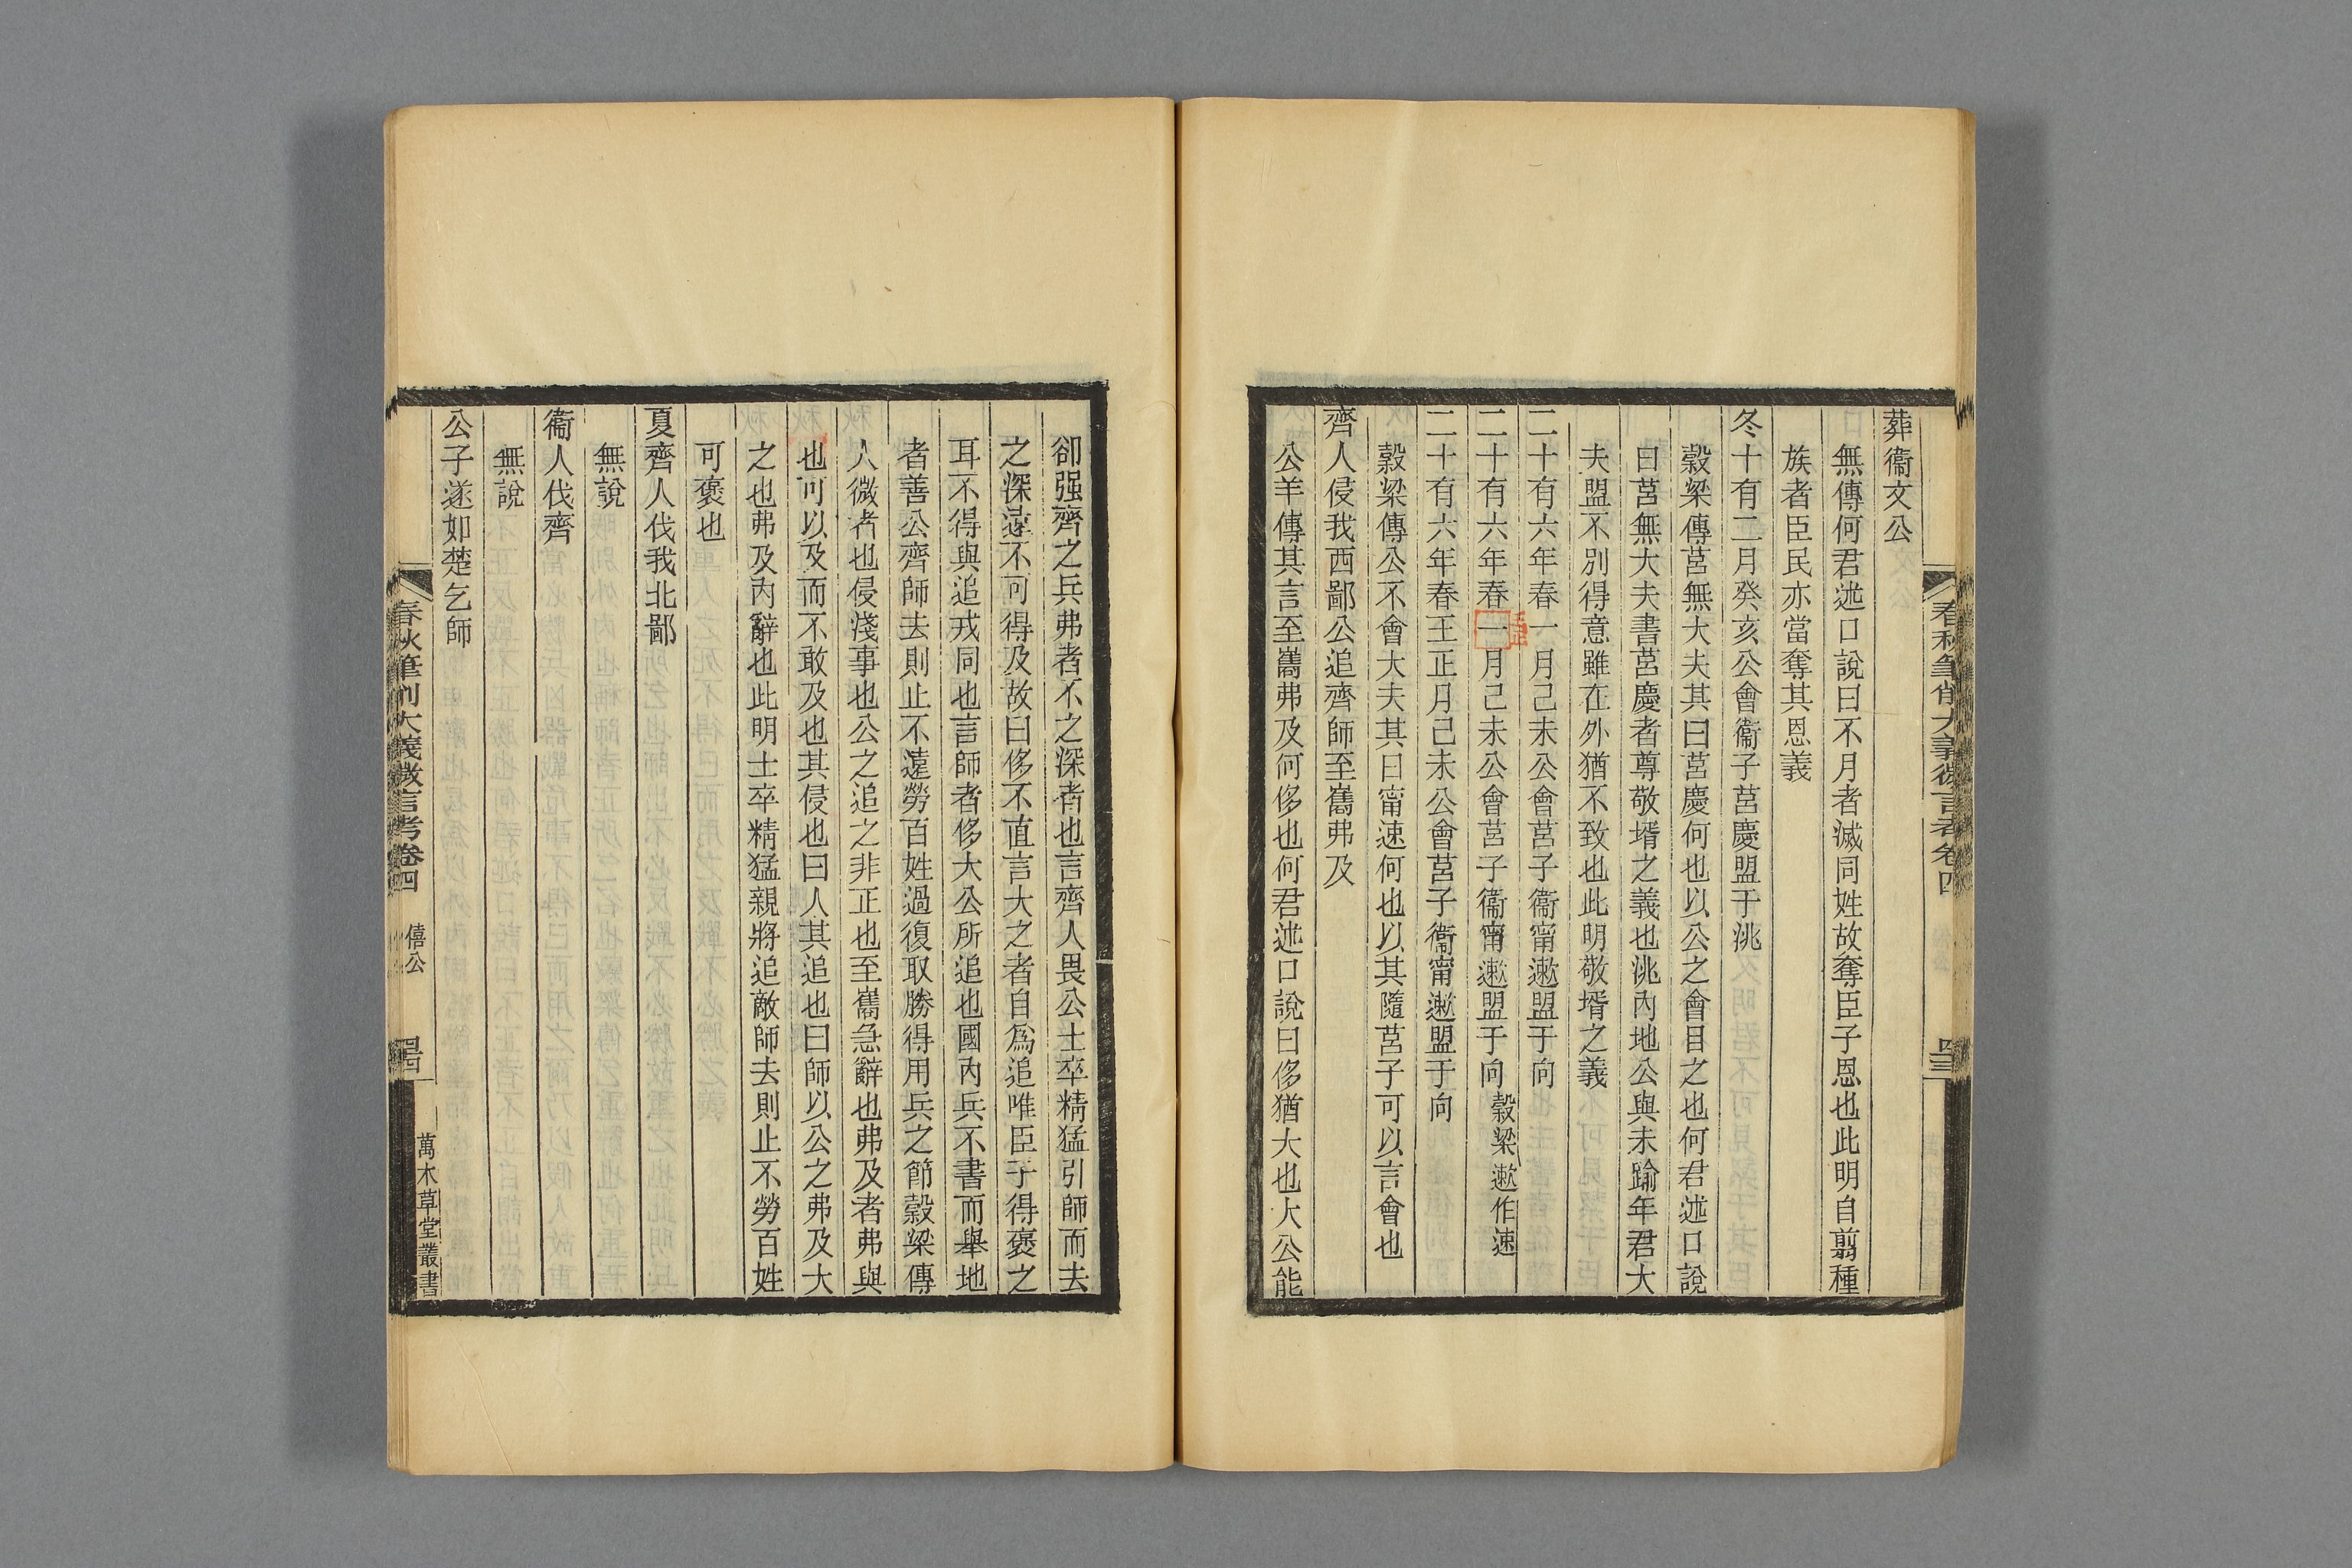 春秋筆削大義微言考卷四
葬衞文公
無傳何君述口說曰不月者滅同姓故奪臣子恩也此明自翦種
族者臣民亦當奪其恩義
冬十有二月癸亥公會衞子莒慶盟于洮
穀梁傳莒無大夫其曰莒慶何也以公之會目之也何君述口說
曰莒無大夫書莒慶者尊敬壻之義也洮內地公與未踰年君大
夫盟不別得意雖在外猶不致也此明敬壻之義
二十有六年春一月己未公會莒子衞甯遬盟于向
二十有六年春一月己未公會莒子衞甯遬盟于向 穀梁遬作速
二十有六年春王正月己未公會莒子衞甯遬盟于向
穀梁傳公不會大夫其曰甯速何也以其隨莒子可以言會也
齊人侵我西鄙公追齊師至巂弗及
公羊傳其言至巂弗及何侈也何君述口說曰侈猶大也大公能
卻强齊之兵弗者不之深者也言齊人畏公士卒精猛引師而去
之深遠不可得及故曰侈不直言大之者自爲追唯臣子得褒之
耳不得與追戎同也言師者侈大公所追也國內兵不書而舉地
者善公齊師去則止不遠勞百姓過復取勝得用兵之節穀梁傳
人微者也侵淺事也公之追之非正也至巂急辭也弗及者弗與
也可以及而不敢及也其侵也曰人其追也曰師以公之弗及大
之也弗及內辭也此明士卒精猛親將追敵師去則止不勞百姓
可褒也
夏齊人伐我北鄙
無說
衞人伐齊
無說
公子遂如楚乞師
春秋筆削大義微言考卷四 僖公
萬木草堂叢書